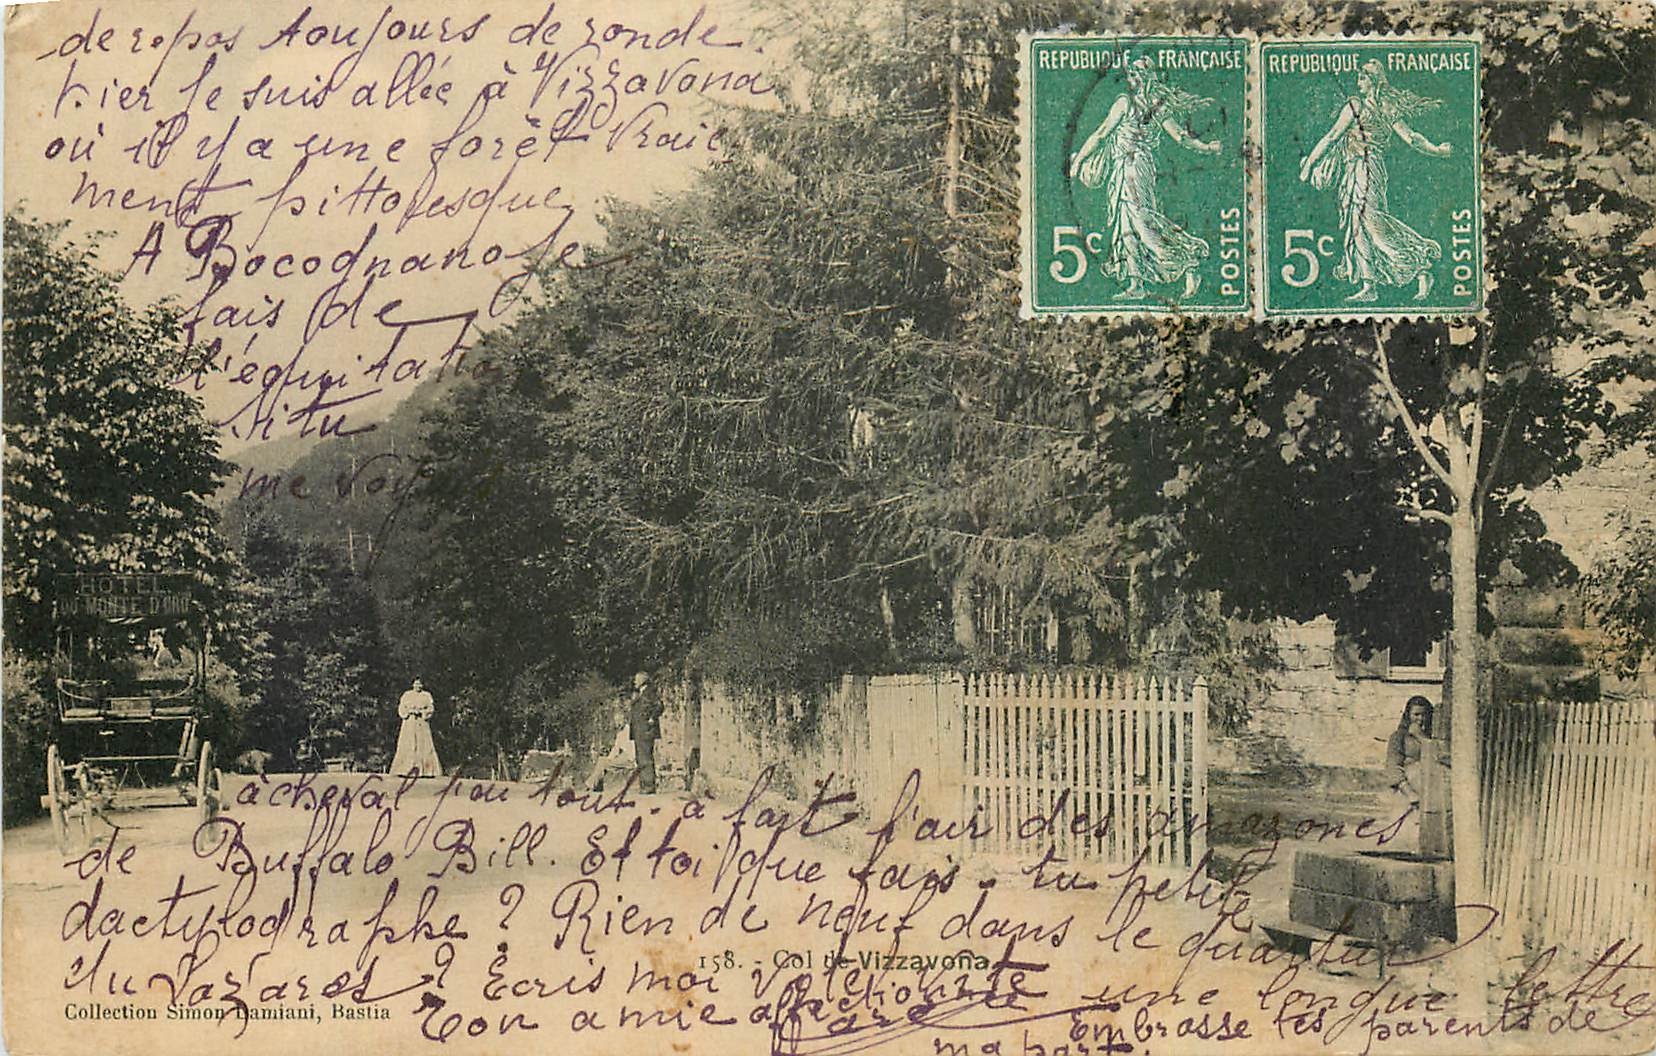 de repos toujours de ronde.
hier je suis allée à Vizzavona
où il y a une forêt vraie
ment pittoresque
A Bocognano je
fais de
l'équitatio
si tu
me voyais
REPUBLIQUE FRANÇAISE
5c
POSTES
REPUBLIQUE FRANÇAISE
5c
POSTES
HOTEL
DU MONTE D'ORO
à cheval partout. à fait l'air des amazones
de Buffalo Bill. Et toi que fais-tu petite
dactylographe ? Rien de neuf dans le quartier
du Lazaret ? Ecris moi vite une longue lettre
158. - Col de Vizzavona
Collection Simon Damiani, Bastia
Ton amie affectionnée
Embrasse tes parents de
ma part.